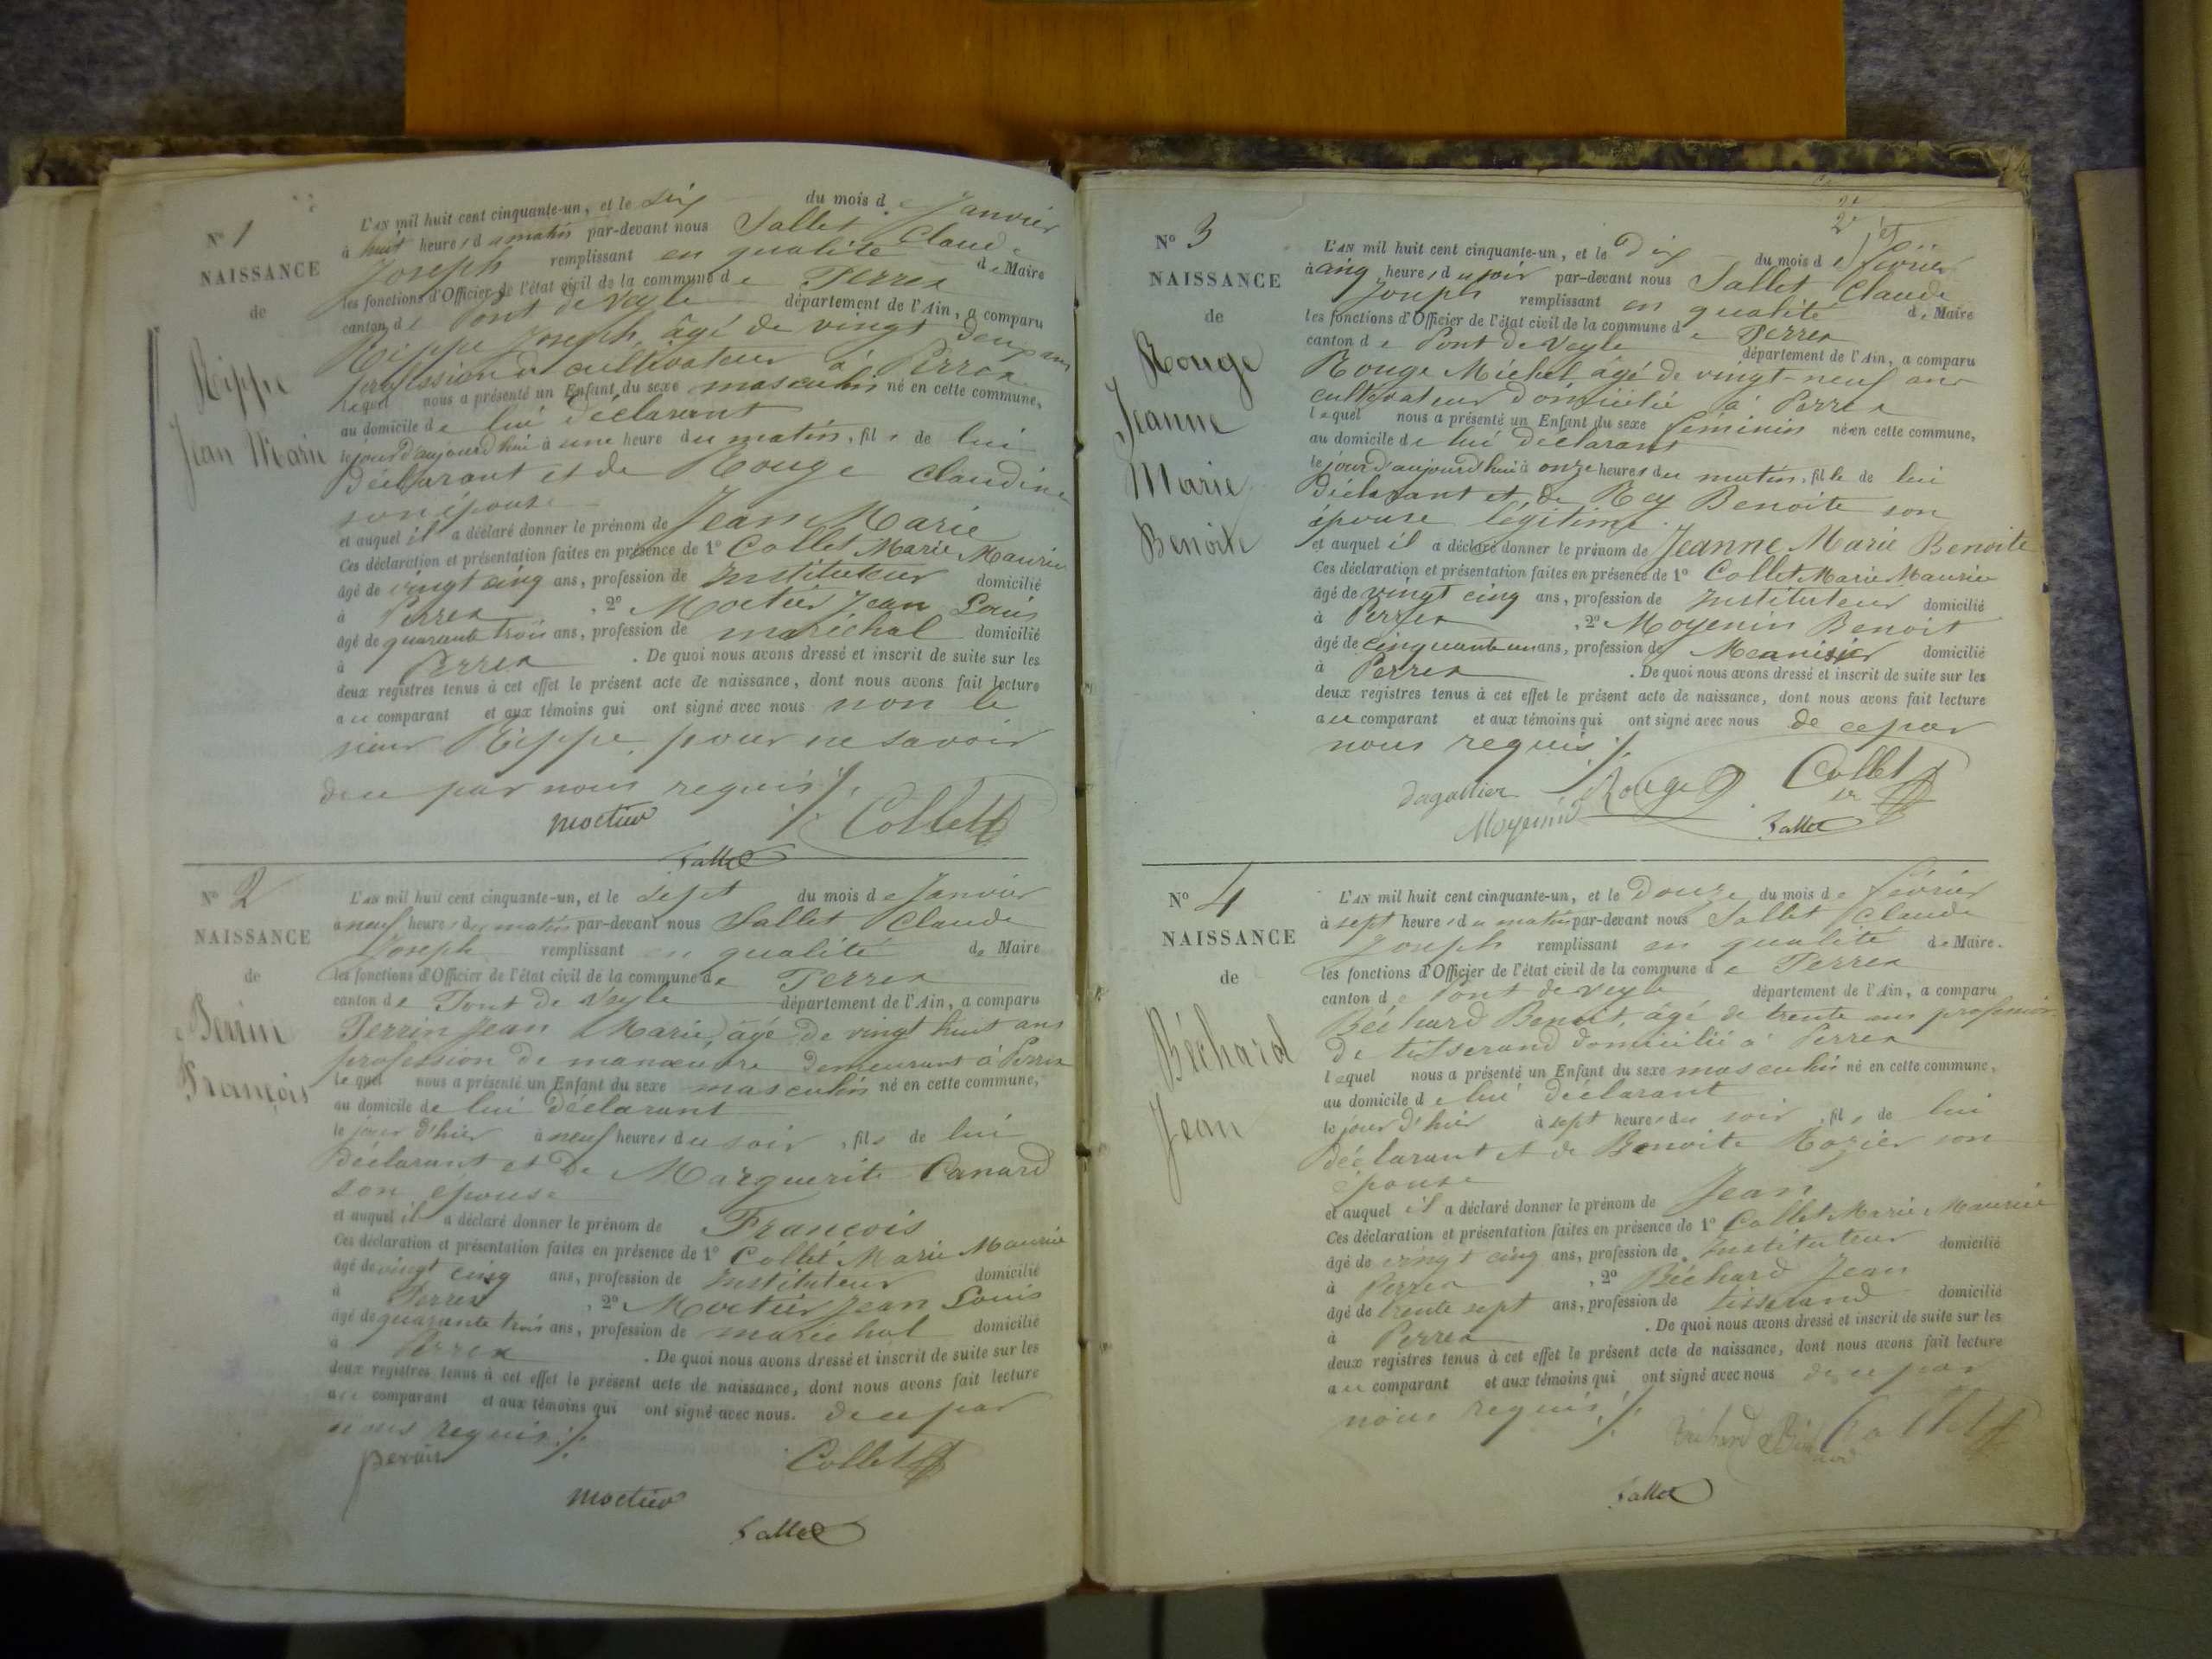 N° 1
NAISSANCE
de
Rippe
Jean Marie
L'AN mil huit cent cinquante-un, et le six du mois de Janvier
à huit heures du matin par-devant nous Sallet Claude
Joseph remplissant en qualité de Maire
les fonctions d'Officier de l'état civil de la commune de Perrex
canton de Pont de Veyle département de l'Ain, a comparu
Rippe Joseph, âgé de vingt deux ans
profession de cultivateur à Perrex
lequel nous a présenté un Enfant du sexe masculin né en cette commune,
au domicile de lui déclarant
le jour d'aujourd'hui à une heure du matin, fils de lui
déclarant et de Rouge Claudine
son épouse
et auquel il a déclaré donner le prénom de Jean Marie
Ces déclaration et présentation faites en présence de 1° Collet Marie Maurice
âgé de vingt cinq ans, profession de Instituteur domicilié
à Perrex, 2° Moctier Jean Louis
âgé de quarante trois ans, profession de maréchal domicilié
à Perrex. De quoi nous avons dressé et inscrit de suite sur les
deux registres tenus à cet effet le présent acte de naissance, dont nous avons fait lecture
au comparant et aux témoins qui ont signé avec nous non le
sieur Rippe pour ne savoir
de ce par nous requis ./.
Moctier Collet
Sallet
N° 2
NAISSANCE
de
Perrin
François
L'AN mil huit cent cinquante-un, et le sept du mois de Janvier
à neuf heures du matin par-devant nous Sallet Claude
Joseph remplissant en qualité de Maire
les fonctions d'Officier de l'état civil de la commune de Perrex
canton de Pont de Veyle département de l'Ain, a comparu
Perrin Jean Marie, âgé de vingt huit ans
profession de manœuvre demeurant à Perrex
lequel nous a présenté un Enfant du sexe masculin né en cette commune,
au domicile de lui déclarant
le jour d'hier à neuf heures du soir, fils de lui
déclarant et de Marguerite Canard
son épouse
et auquel il a déclaré donner le prénom de François
Ces déclaration et présentation faites en présence de 1° Collet Marie Maurice
âgé de vingt cinq ans, profession de Instituteur domicilié
à Perrex, 2° Moctier Jean Louis
âgé de quarante trois ans, profession de maréchal domicilié
à Perrex. De quoi nous avons dressé et inscrit de suite sur les
deux registres tenus à cet effet le présent acte de naissance, dont nous avons fait lecture
au comparant et aux témoins qui ont signé avec nous. de ce par
nous requis ./.
perrin Collet
Moctier
Sallet
N° 3
NAISSANCE
de
Rouge
Jeanne
Marie
Benoite
L'AN mil huit cent cinquante-un, et le Dix du mois de février
à cinq heures du soir par-devant nous Sallet Claude
Joseph remplissant en qualité de Maire
les fonctions d'Officier de l'état civil de la commune de Perrex
canton de Pont de Veyle département de l'Ain, a comparu
Rouge Michel âgé de vingt-neuf ans
cultivateur domicilié à Perrex
lequel nous a présenté un Enfant du sexe féminin né en cette commune,
au domicile de lui déclarant
le jour d'aujourd'hui à onze heures du matin, fille de lui
déclarant et de Rey Benoite son
épouse légitime
et auquel il a déclaré donner le prénom de Jeanne Marie Benoite
Ces déclaration et présentation faites en présence de 1° Collet Marie Maurice
âgé de vingt cinq ans, profession de Instituteur domicilié
à Perrex, 2° Moyenin Benoit
âgé de cinquante un ans, profession de Menuisier domicilié
à Perrex. De quoi nous avons dressé et inscrit de suite sur les
deux registres tenus à cet effet le présent acte de naissance, dont nous avons fait lecture
au comparant et aux témoins qui ont signé avec nous de ce par
nous requis ./.
Dagallier Rouge Collet
Moyenin Sallet
N° 4
NAISSANCE
de
Béchard
Jean
L'AN mil huit cent cinquante-un, et le Douze du mois de février
à sept heures du matin par-devant nous Sallet Claude
Joseph remplissant en qualité de Maire.
les fonctions d'Officier de l'état civil de la commune de Perrex
canton de Pont de Veyle département de l'Ain, a comparu
Béchard Benoit, âgé de trente ans profession
de titserand domicilié à Perrex
lequel nous a présenté un Enfant du sexe masculin né en cette commune,
au domicile de lui déclarant
le jour d'hier à sept heures du soir, fils de lui
déclarant et de Benoite Rozier son
épouse
et auquel il a déclaré donner le prénom de Jean
Ces déclaration et présentation faites en présence de 1° Collet Marie Maurice
âgé de vingt cinq ans, profession de Instituteur domicilié
à Perrex, 2° Béchard Jean
âgé de trente sept ans, profession de tisserand domicilié
à Perrex. De quoi nous avons dressé et inscrit de suite sur les
deux registres tenus à cet effet le présent acte de naissance, dont nous avons fait lecture
au comparant et aux témoins qui ont signé avec nous de ce par
nous requis ./.
Collet
Sallet